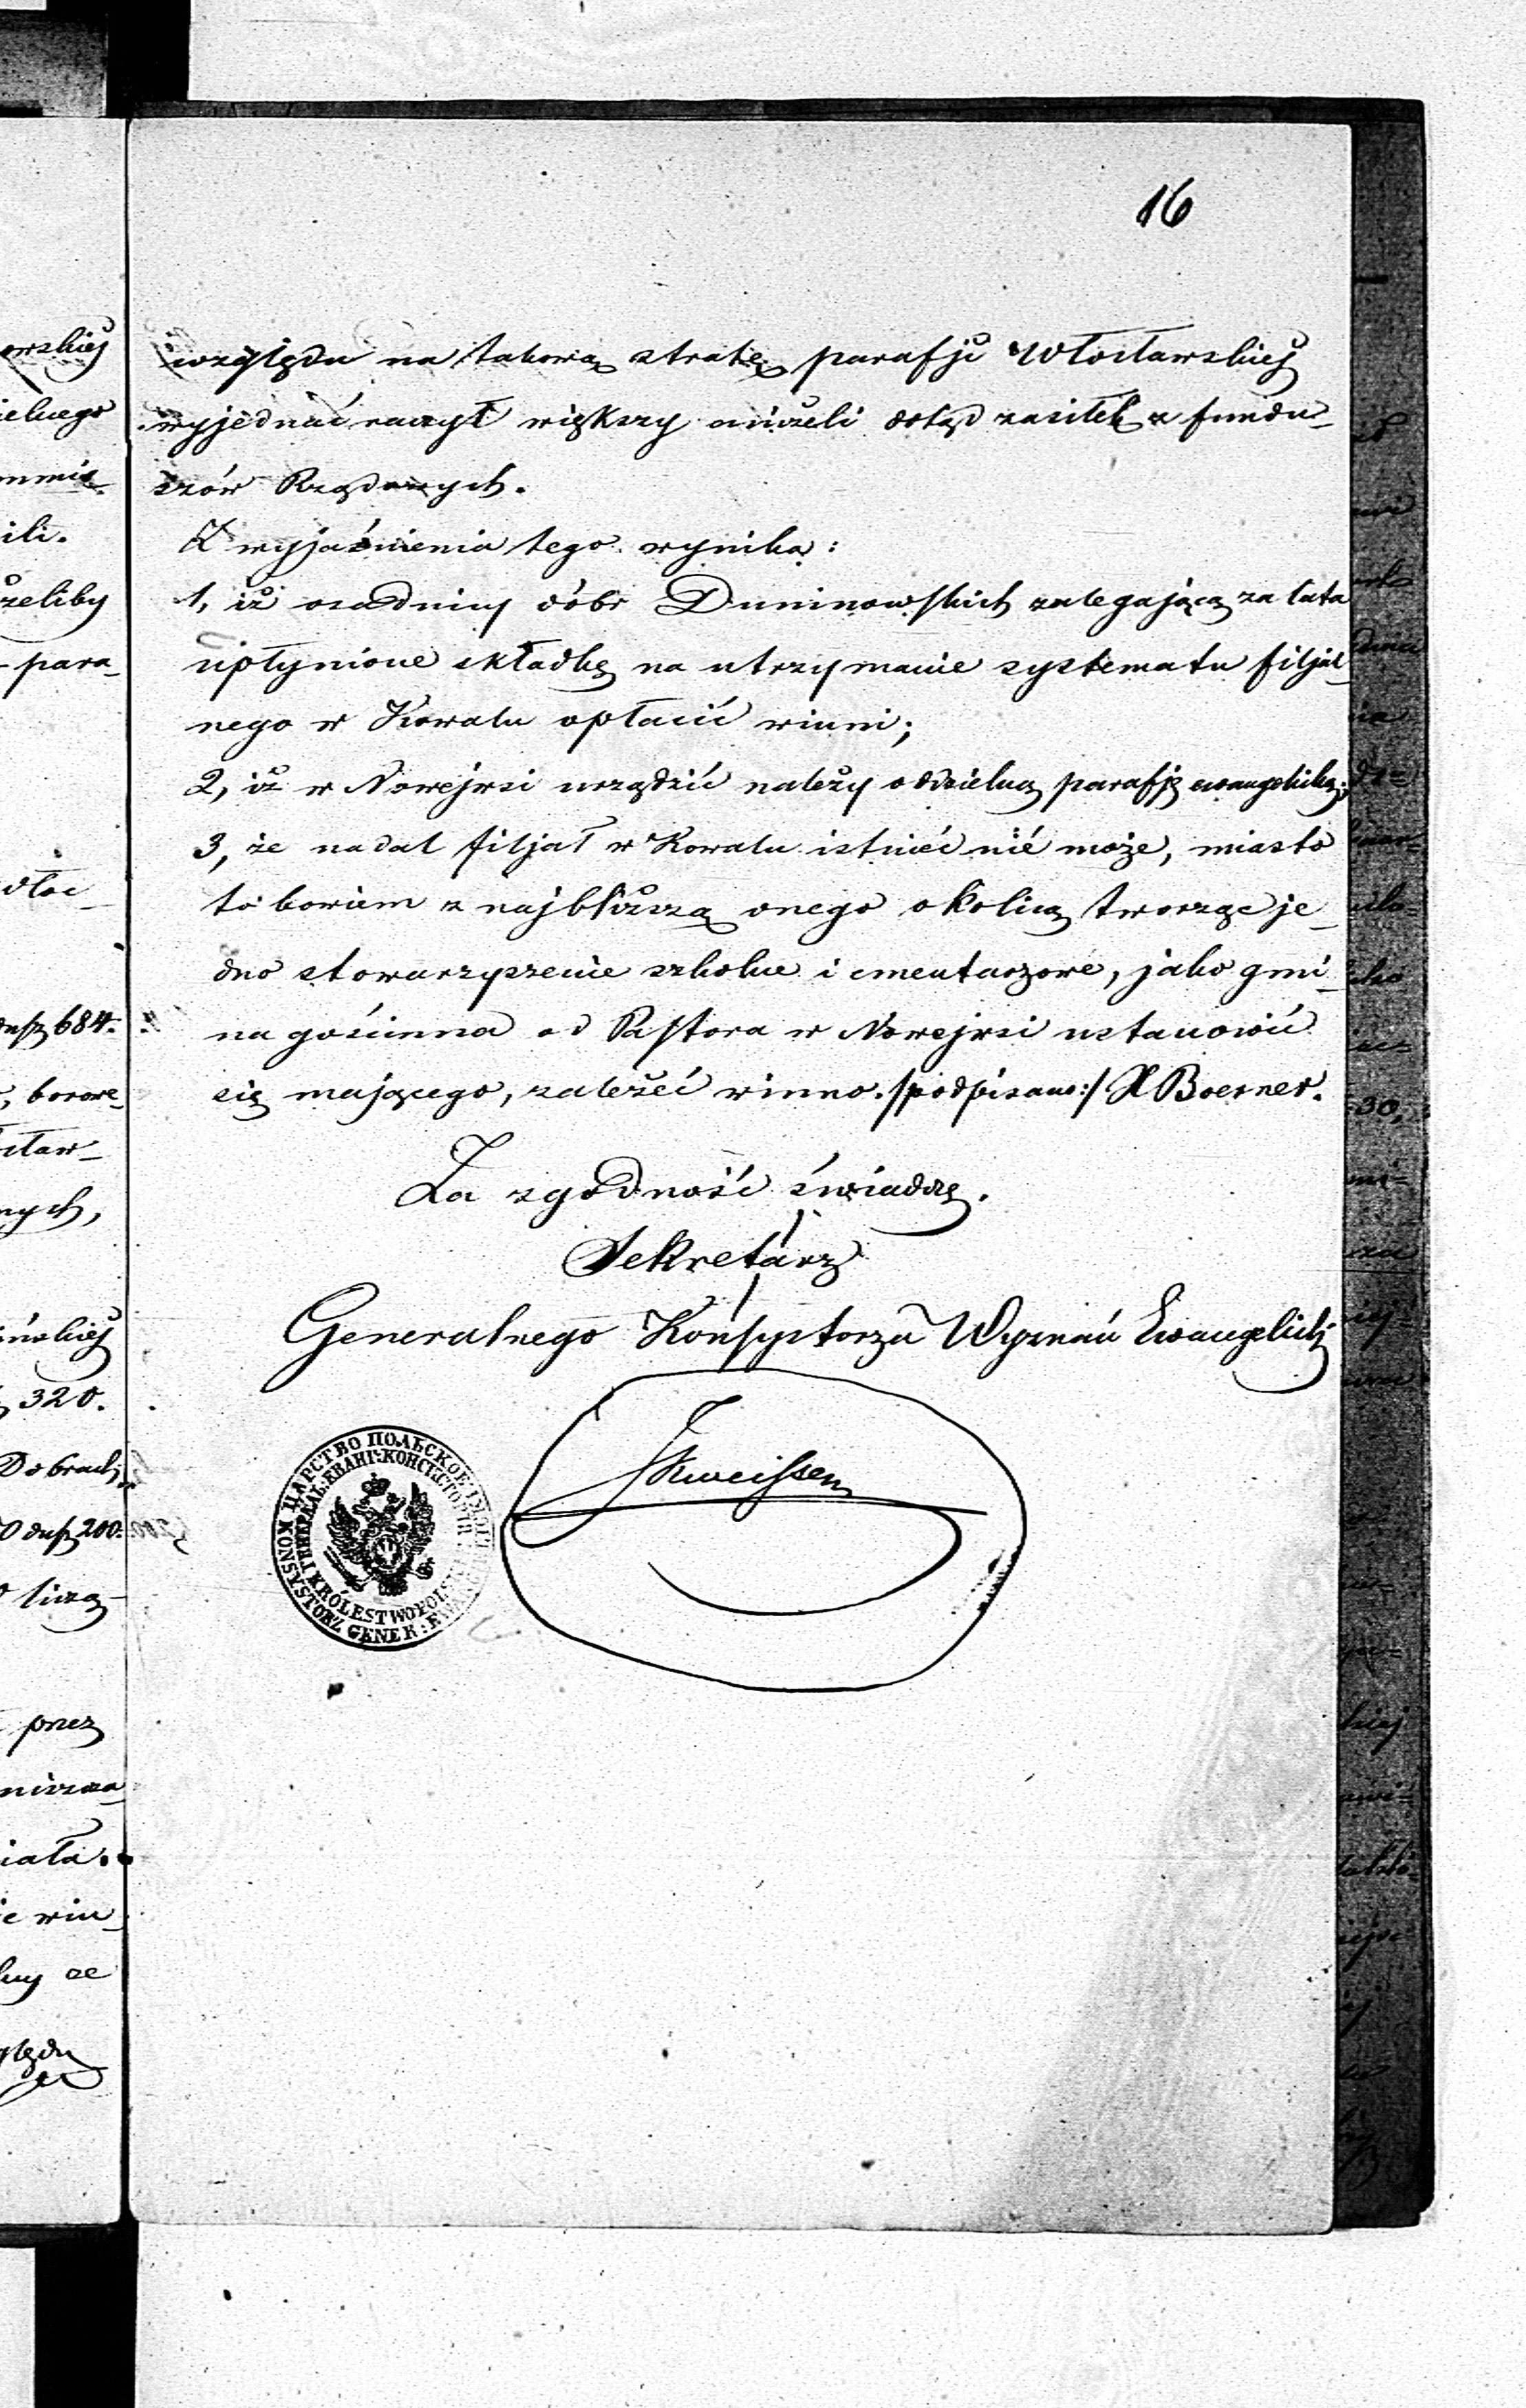 16
względu na takową stratę parafji Włocławskiej
wyjednać raczył większy aniżeli dotąd zasiłek z fundu-
szów Rządowych.
Z wyjaśnienia tego wynika:
1, iż osadnicy dóbr Duninowskich zalegającą za lata
upłynione składkę na utrzymanie systematu filjal-
nego w Kowalu opłacić winni;
2, iż w Nowejwsi urządzić należy oddzielną parafję ewangelicką;
3, że nadal filjał w Kowalu istnieć nié może, miasto
to bowiem z najbliższą onego okolicą tworząc je-
dno stowarzyszenie szkolne i cmentarzowe, jako gmi-
na gościnna od Pastora w Nowejwsi ustanowić
się mającego, zależeć winno. /podpisano:/ X Boerner.
Za zgodność świadczę.
Sekretarz
Generalnego Konsystorza Wyznań Ewangelickich
ЦАРСТВО ПОЛЬСКОЕ
ГЕНЕРАЛЬ: ЕВАНГ: КОНСИСТОРІЯ
KRÓLESTWO POLSKIE
KONSYSTORZ GENER: EWANG
owskiej
ielnego
ili.
żeliby
- para-
dusz 684.
, borowe-
cław-
nych,
ińskiej
320.
Dobrach
dusz 200.
przez
iała.
że
ględu